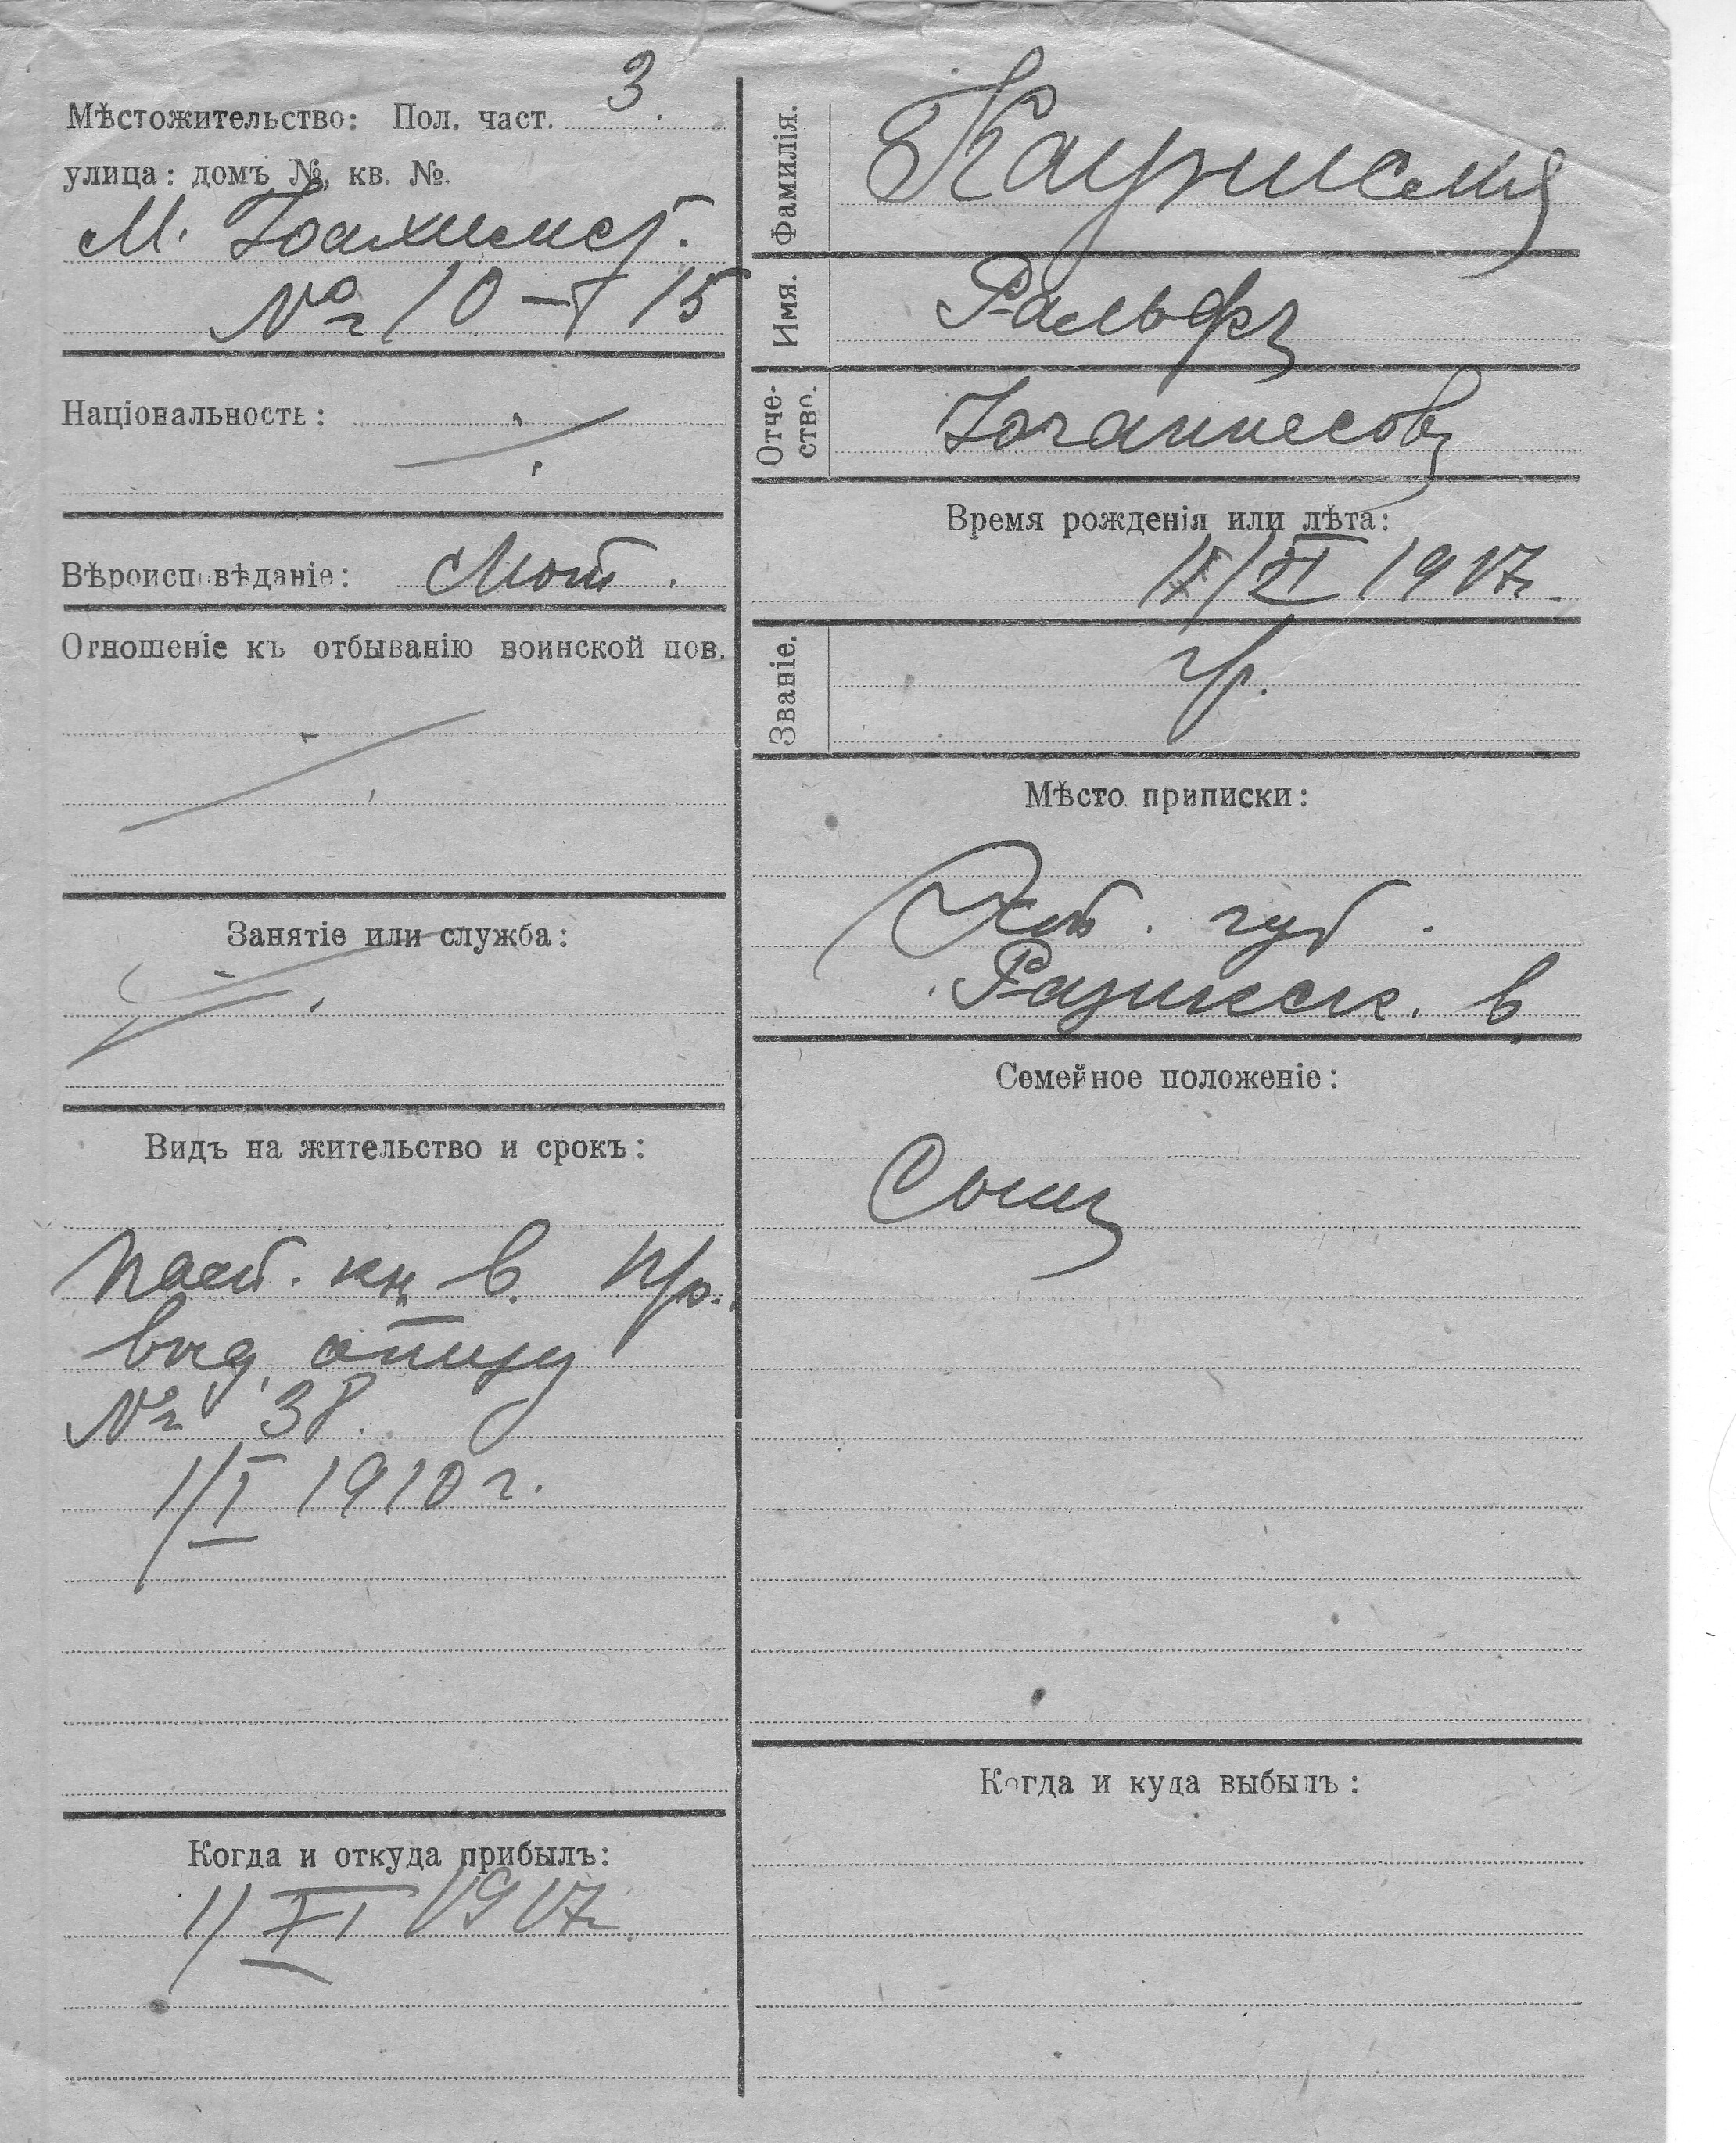 Мѣстожительство: Пол. част. 3.
улица: домъ №, кв. №.
М. Іоахимст.
№ 10 – 15
Національность:
Вѣроисповѣданіе: Лют.
Отношеніе къ отбыванію воинской пов.
Занятіе или служба:
Видъ на жительство и срокъ:
пасп. кн. в. пр.
выд. отцу
№ 38.
1/I 1910 г.
Когда и откуда прибылъ:
1/XI 1917
Фамилія.
Имя. Ральфъ
Отчество. Іоганнесовъ
Время рожденія или лѣта:
/XI 1917.
Званіе. кр.
Мѣсто приписки:
Эст. губ.
в
Семейное положеніе:
Сынъ
Когда и куда выбылъ: